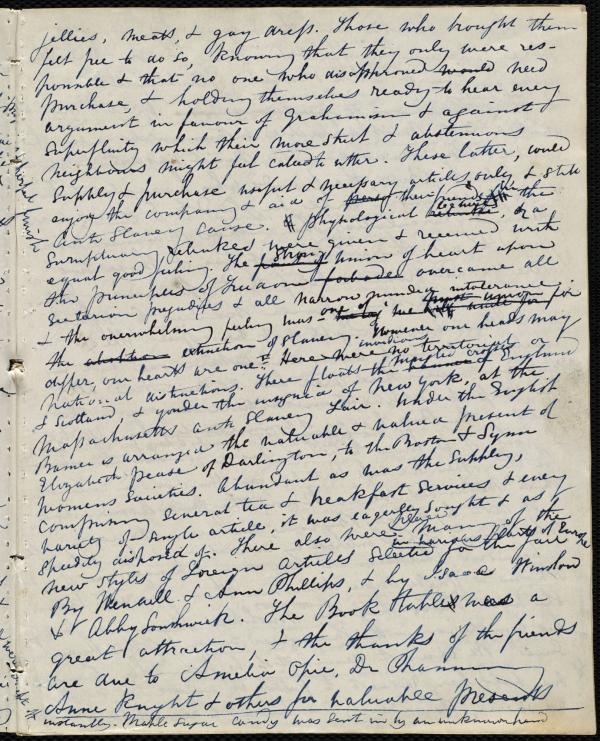 jellies, meats, & gay dress. Those who bought them
felt free to do so, knowing that they only were res-
ponsible & that no one who disapproved would need
purchase, & holding themselves ready to hear every
argument in favour of Grahamism & against
superfluity which their more strict & abstemious
neighbours might feel called to utter. These latter, could
supply & purchase useful & necessary articles only, & still
enjoy the company & aid of their friends in the
Anti Slavery cause. Physiological & or a
Sumptuary rebukes were given & received with
equal good feeling. The strong union of heart upon
the principles of Freedom overcame all
sectarian prejudices & all narrow minded intolerance
& the overwhelming feeling was one for
the extinction of slavery. However our heads may
differ, our hearts are one". Here were no territorial
National distinctions. There floats the of England
& Scotland, & yonder the insignia of New York, at the
Massachusetts Anti Slavery Fair. Under the English
Banner is arranged the valuable & valued present of
Elizabeth Pease of Darlington, to the Boston & Lynn
Womens Societies. Abundant as was the supply,
comprising several tea & breakfast services & every
variety of single article, it was eagerly sought & as
speedily disposed of. There also were many of the
new styles of Foreign articles selected for the fair in various parts of Europe
By Wendell & Ann Phillips, & by Isaac Winslow
& Abby Southwick. The Book table was a
great attraction, & the thanks of the friends
are due to Amelia Opie, Dr Channing
Anne Knight & others for valuable presents
instantly. Maple sugar candy was sent in by an unknown hand